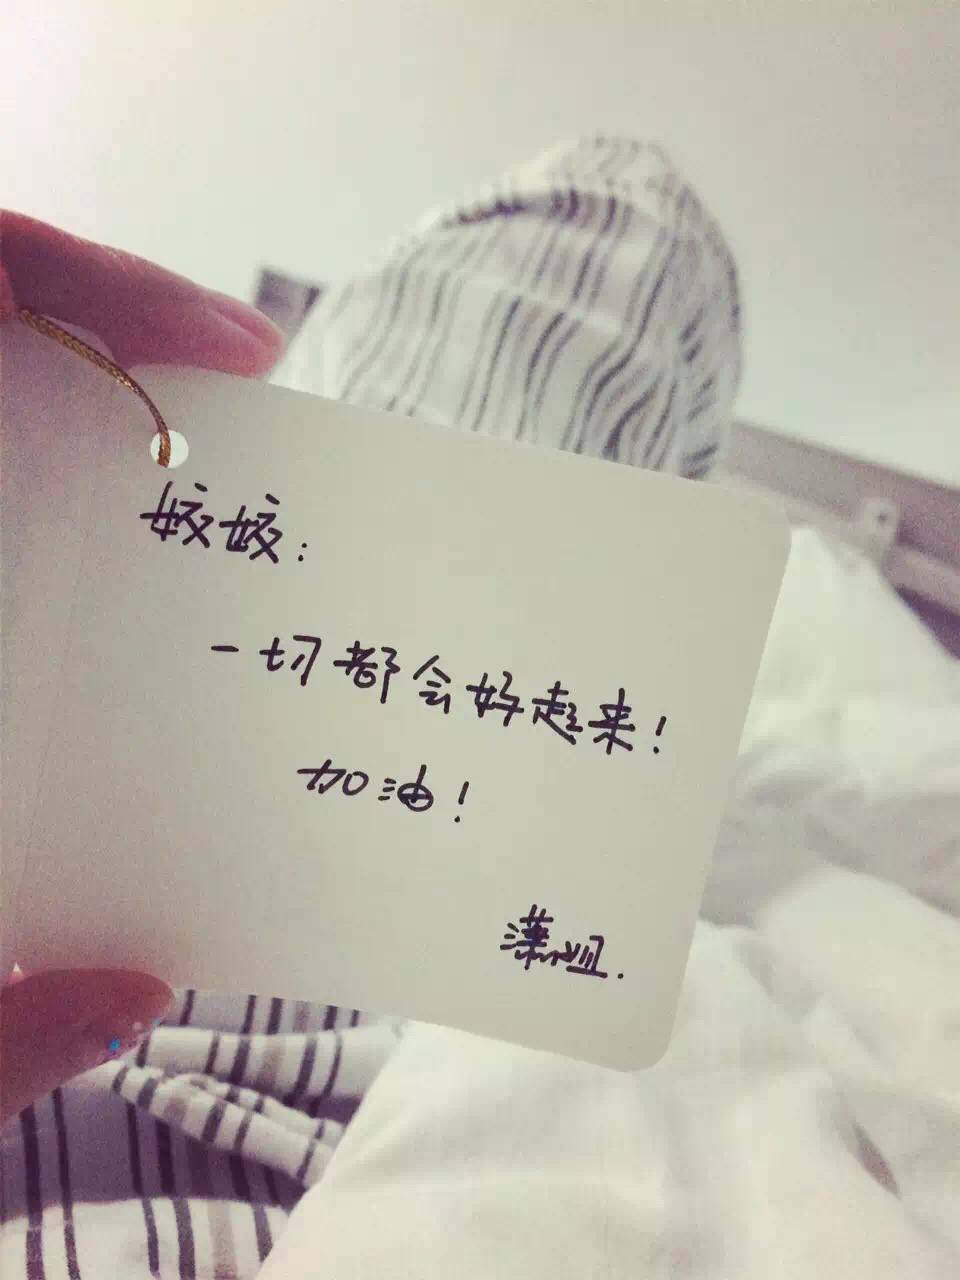 姣姣：
一切都会好起来！
加油！
潇姐.